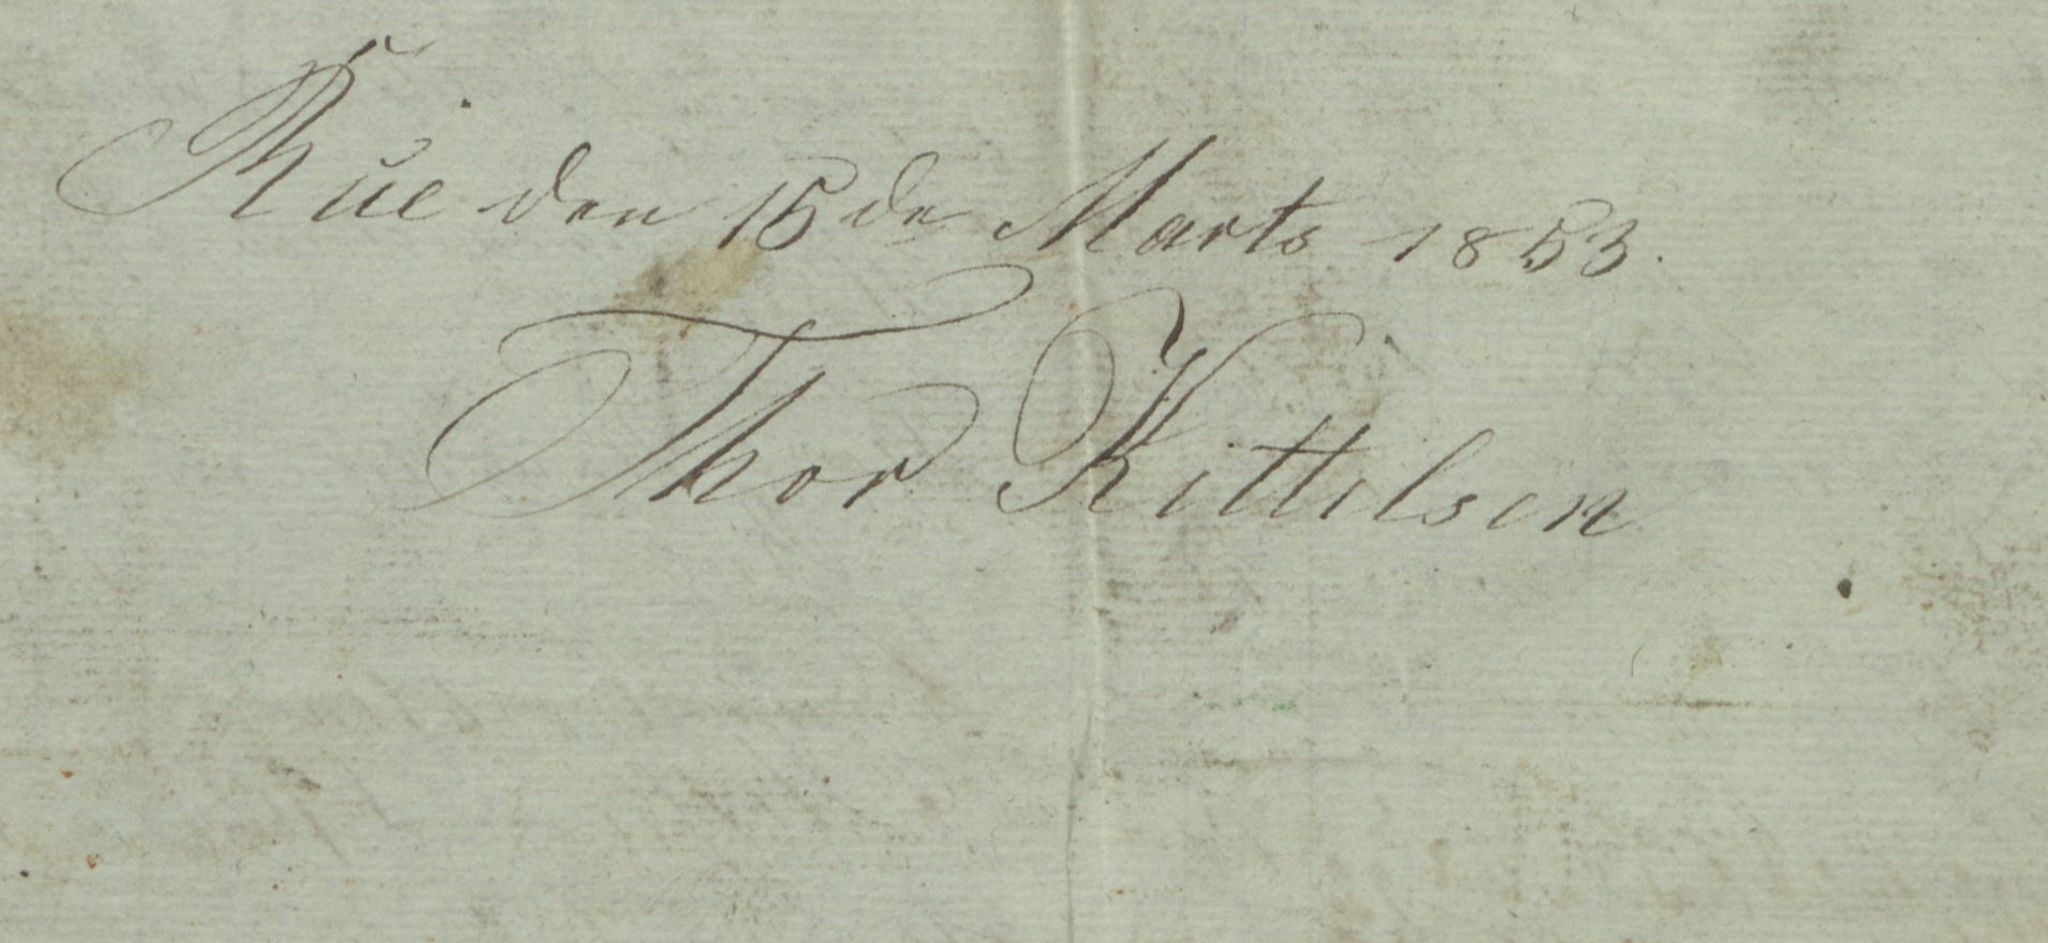 Rue den 15de Marts 1853.
Thor Kittilsen